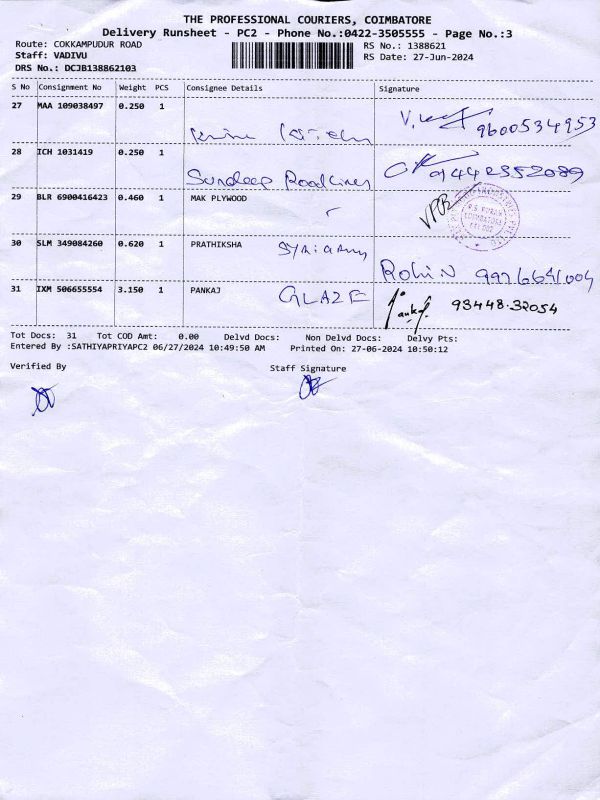 THE PROFESSIONAL COURIERS, COIMBATORE
Delivery Runsheet - PC2 - Phone No.:0422-3505555 - Page No.:3
Route: COKKAMPUDUR ROAD
RS No.: 1388621
Staff: VADIVU
RS Date: 27-Jun-2024
DRS No.: DCJB138862103
S No Consignment No Weight PCS Consignee Details Signature
27 MAA 109038497 0.250 1
9600534953
28 ICH 1031419 0.250 1
Sundeep Roadlines 9442552089
29 BLR 6900416423 0.460 1 MAK PLYWOOD
30 SLM 349084260 0.620 1 PRATHIKSHA
Rohin 9976641004
31 IXM 506655554 3.150 1 PANKAJ GLAZE
Pankaj 93448.32054
Tot Docs: 31 Tot COD Amt: 0.00 Delvd Docs: Non Delvd Docs: Delvy Pts:
Entered By :SATHIYAPRIYAPC2 06/27/2024 10:49:50 AM Printed On: 27-06-2024 10:50:12
Verified By
Staff Signature